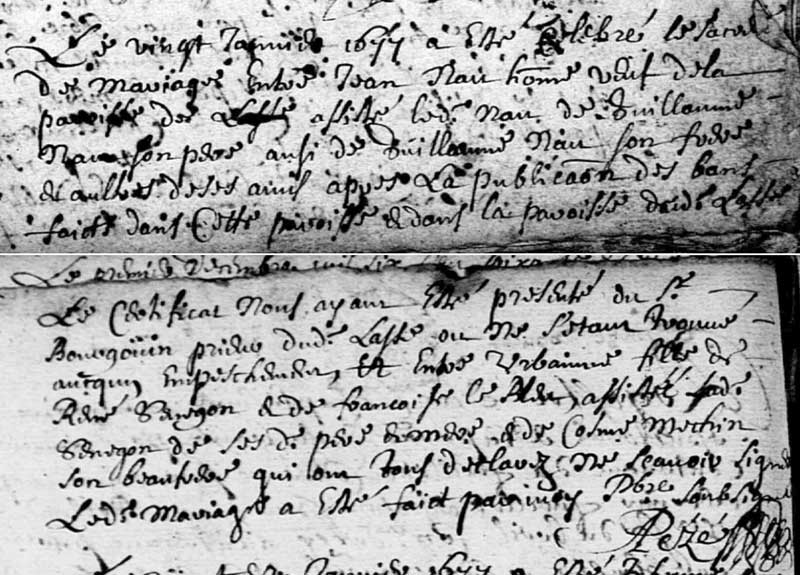 Le vingt Janvier 1677 a esté celebré le sacre
des mariages entre Jean Nau home veuf de la
paroisse de Lasse assisté led. Nau de Guillaume
Nau son pere ausi de Guillaume Nau son frere
& aultres de ses amis apres La publicaon des bans
faicts dans Cette paroisse & dans la paroisse dud. Lasse
Le premier decembre mil six
Le Certificat Nous ayant esté presenté du Sr
Bourgouin prieur dud. Lasse ou ne s'etant trouvé
aucqun empeschement Et Entre Urbainne fille de
René Senegon & de francoise le assistée lade
Senegon de ses d. pere & mere & de Cosme Mechin
son beaufrere qui ont tous declarez ne scavoir signer
Leds. mariage a esté faict par moy Pbre soubsigné
Pezé
Janvier 1677 a esté